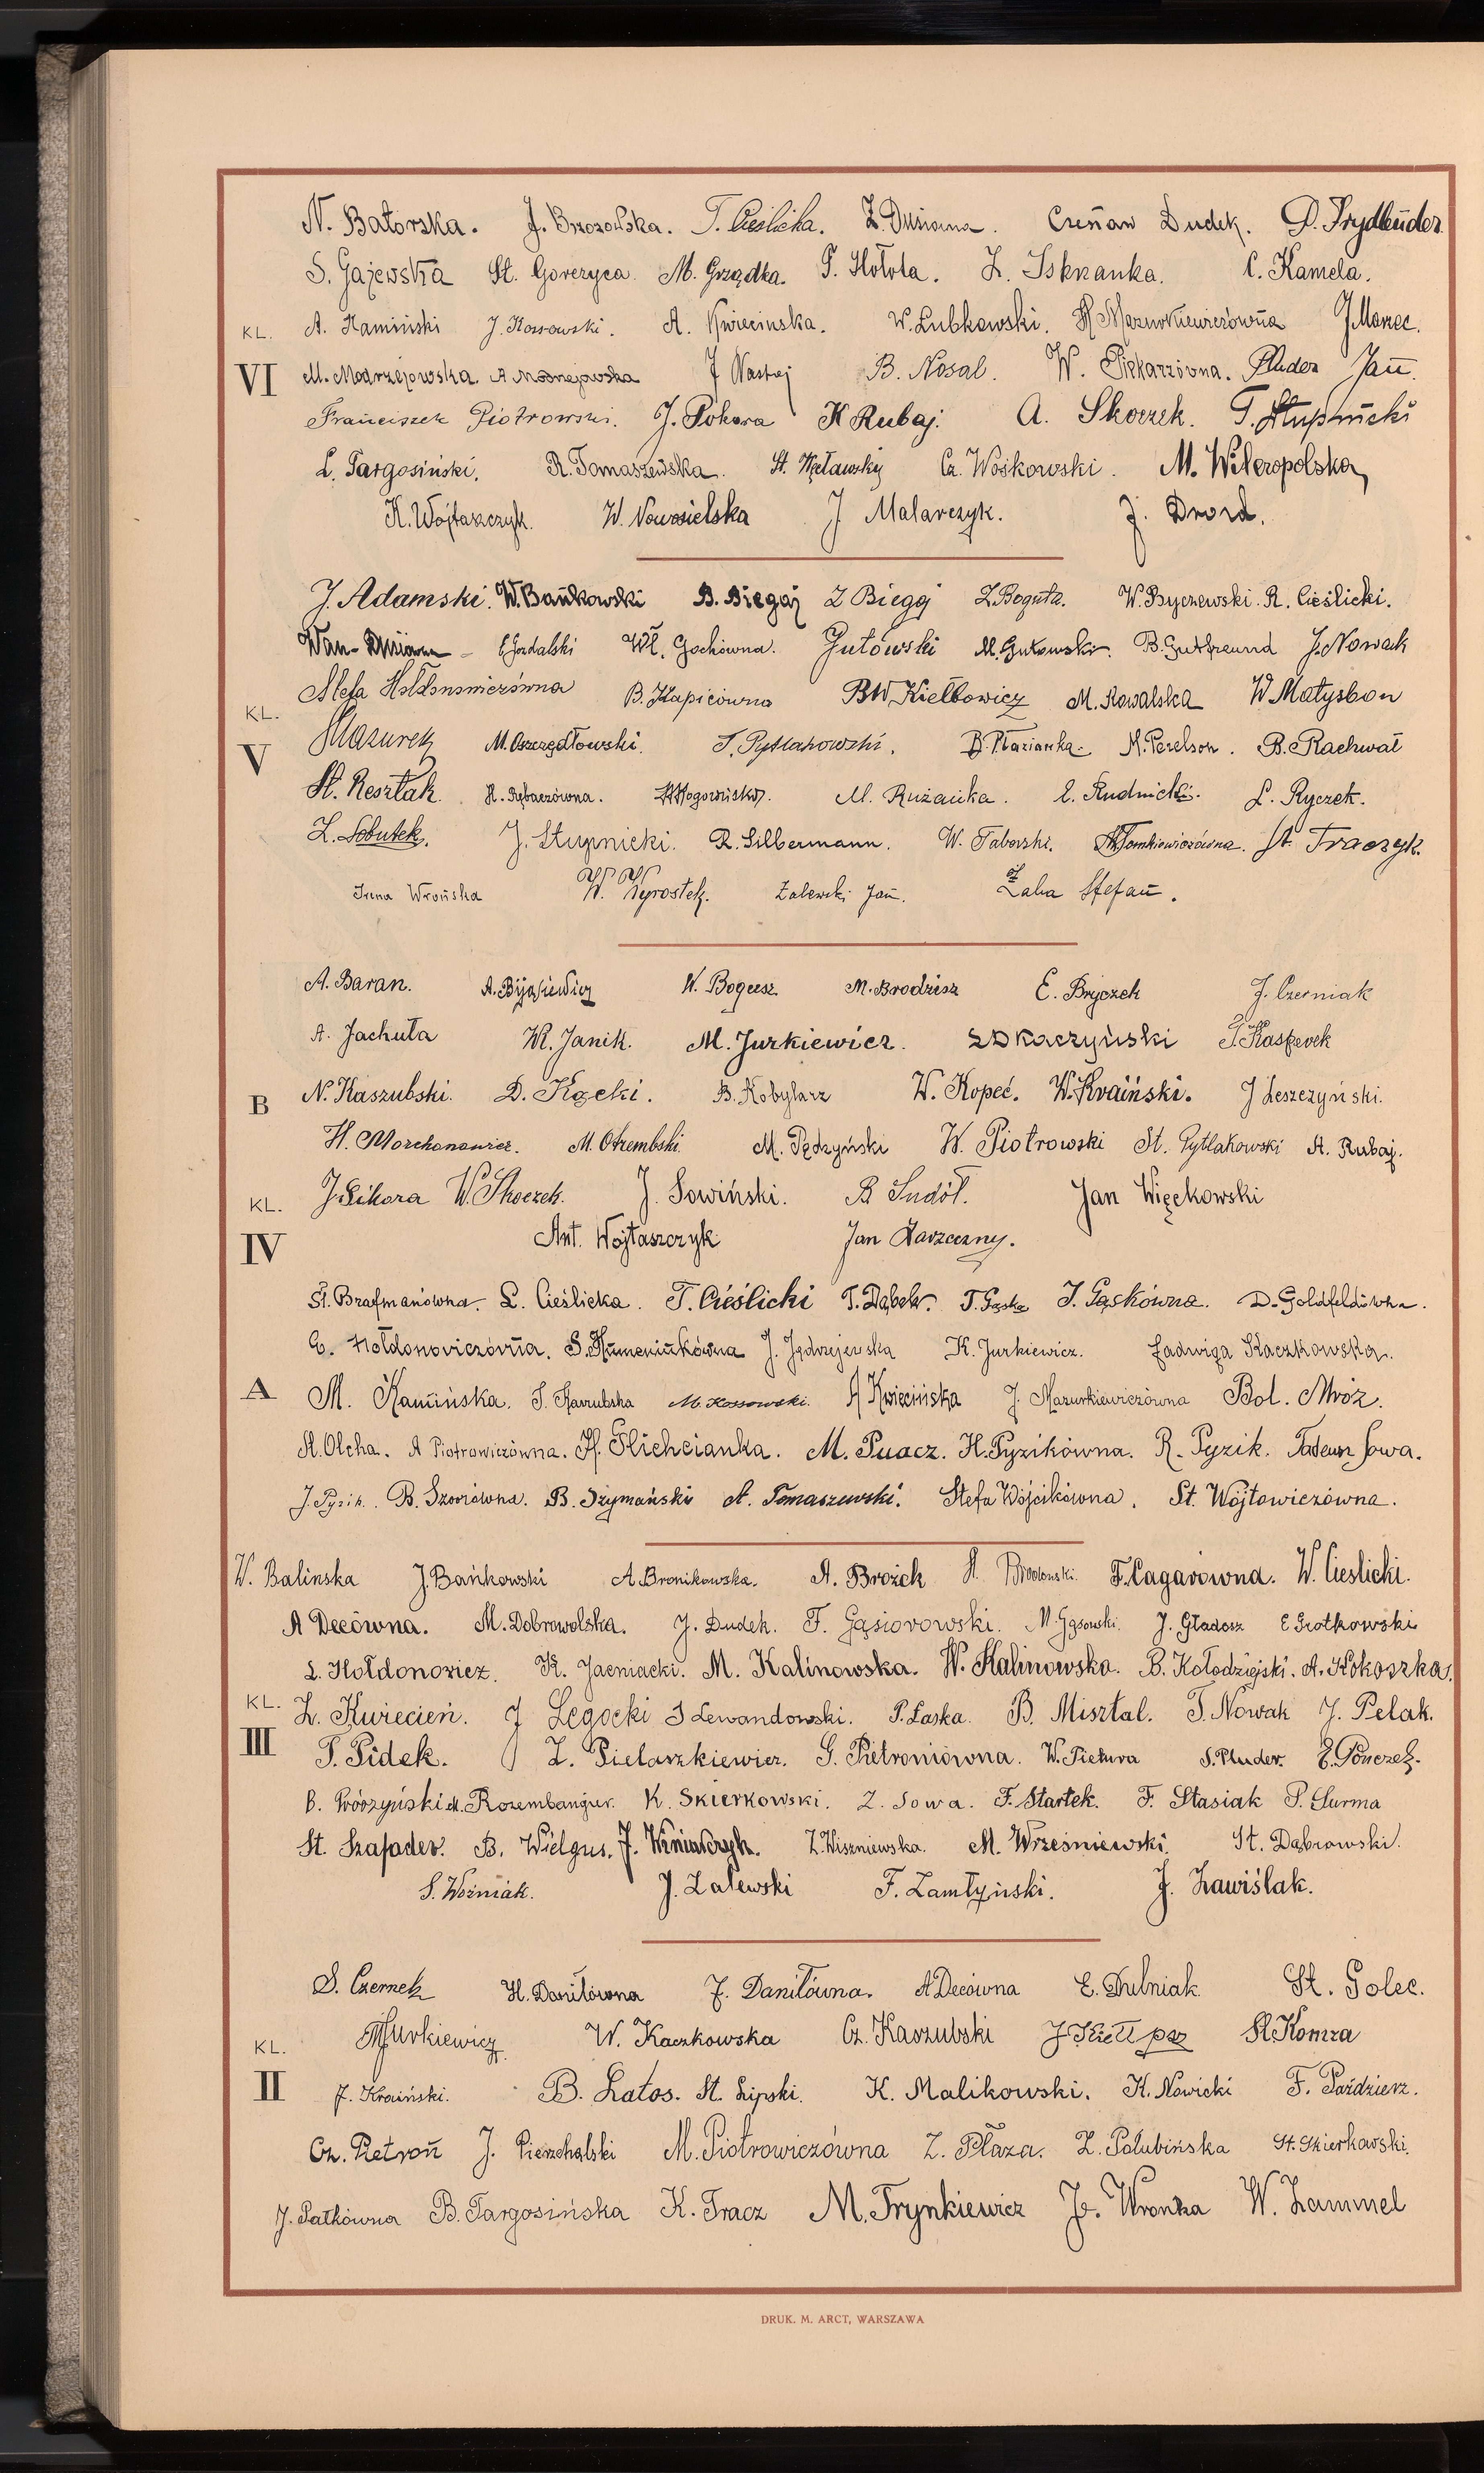 N. Batorska. J. Brzozowska. T. Cieślicka. Z. Czesław Dudek. D. Frydleuder
S. Gajewska St. Gorczyca M. Grządka. F. Hołota. Z. C. Kamela.
KL. A. Kamiński J. Kossowski. A. Kwiecinska. W. Lubkowski. Mazurkiewiczówna J. Marzec.
VI M. Modrzejowska. A Modrzejewska J Nastaj B. Nosal. W. Piekarzówna. Pluder Jan.
Franciszek Piotrowski. J. Pokora K Rubaj. A. Skoczek. T. Słupnicki
L. Targosiński. R. Tomaszewska. St. Węcławski Cz. Woskowski. M. Wieleropolska
K. Wojtaszczyk. W. Nowosielska J Malarczyk. J. Drozd.
J. Adamski. W. Bańkowski B. Biegaj Z Biegaj Z. Boguta. W. Byczewski. R. Cieślicki.
Wł. Gochówna. Gutowski M. Gutowski. B. Gutfreund J. Nowak
KL. B. Kapicówna BW Kiełbowicz M. Kowalska W Matysbon
V Mazurek M. Oszczędłowski. S. Pytlakowski. B. Płazianka. M. Perelson. B. Rachwał
St. Resztak. H. Rębaczówna. M. Rużańka. E. Rudnicki. L. Ryczek.
Z. Sobutek. J. Słupnicki. R. Silbermann. W. Taborski. Tomkiewiczówna. St. Traczyk.
Irena Wrońska W. Wyrostek. Zalewski Jan. Żaba Stefan.
A. Baran. A. Bijasiewicz W. Bogusz M. Brodzisz E. Bryczek J. Czerniak
A. Jachuła Wł. Janik. M. Jurkiewicz. ZD Kaczyński T. Kasperek
B N. Kaszubski. D. Kącki. B. Kobylarz W. Kopeć. W. Kraiński. J Leszczyński.
H. Morchonowicz. M. Otrembski. M. Pędzyński W. Piotrowski St. Pytlakowski A. Rubaj.
KL. J. Sikora W. Skoczek. J. Sowiński. B Sudół. Jan Więckowski
IV Ant. Wojtaszczyk Jan Zarzeczny.
Sł. Brafmanówna. L. Cieślicka. T. Cieślicki T. Dąbek. T. Gąska J. Gąskówna. D. Goldfeldówna.
G. Hołdonowiczówna. S. Humeniukówna J. Jędrzejewska K. Jurkiewicz. Jadwiga Kaczkowska.
A M. Kamińska. S. Kaszubska M. Kossowski. A Kwiecińska J. Mazurkiewiczówna Bol. Mróz.
St. Olcha. A Piotrowiczówna. H. Plichcianka. M. Puacz. H. Pyzikówna. R. Pyzik. Tadeusz Sowa.
J. Pyzik. B. Szoszówna. B. Szymański A. Tomaszewski. Stefa Wójcikówna. St. Wójtowiczówna.
W. Balinska J. Bańkowski A. Bronikowska. A. Brożek F. Cagarówna. W. Cieslicki.
A Decówna. M. Dobrowolska. J. Dudek. F. Gąsiorowski. M. Gąsowski. J. Gładosz E Grotkowski
L. Hołdonowicz. K. Jaeniacki. M. Kalinowska. W. Kalinowska. B. Kołodziejski. A. Kokoszka.
KL. Z. Kwiecień. J Łęgocki J Lewandowski. P. Łaska. B. Misztal. T. Nowak J. Pelak.
III T. Pidek. Z. Pielaszkiewicz. G. Pietroniówna. W. Pietura S. Pluder. E. Pończek.
B. Prószyński M. Rozembangier. K. Skierkowski. Z. Sowa. F. Startek. F. Stasiak P. Surma
St. Szafader. B. Wielgus. J. Winiarczyk. Z. Wiszniewska. M. Wrześniewski. St. Dąbrowski.
S. Woźniak. J. Zalewski F. Zamłyński. J. Zawiślak.
S. Czernek H. Daniłówna J. Daniłówna. A Decówna E. Dulniak. St. Golec.
KL. M Jurkiewicz. W. Kaczkowska Cz. Kaszubski J. Kiełpsz St. Komza
II J. Kraiński. B. Latos. St. Lipski. K. Malikowski. K. Nowicki F. Paździerz.
Cz. Pietroń J. Pierzchalski M. Piotrowiczówna Z. Płaza. Z. Połubińska St. Skierkowski.
J. Patkówna B. Targosińska K. Tracz M. Trynkiewicz Je. Wronka W. Zammel
DRUK. M. ARCT, WARSZAWA